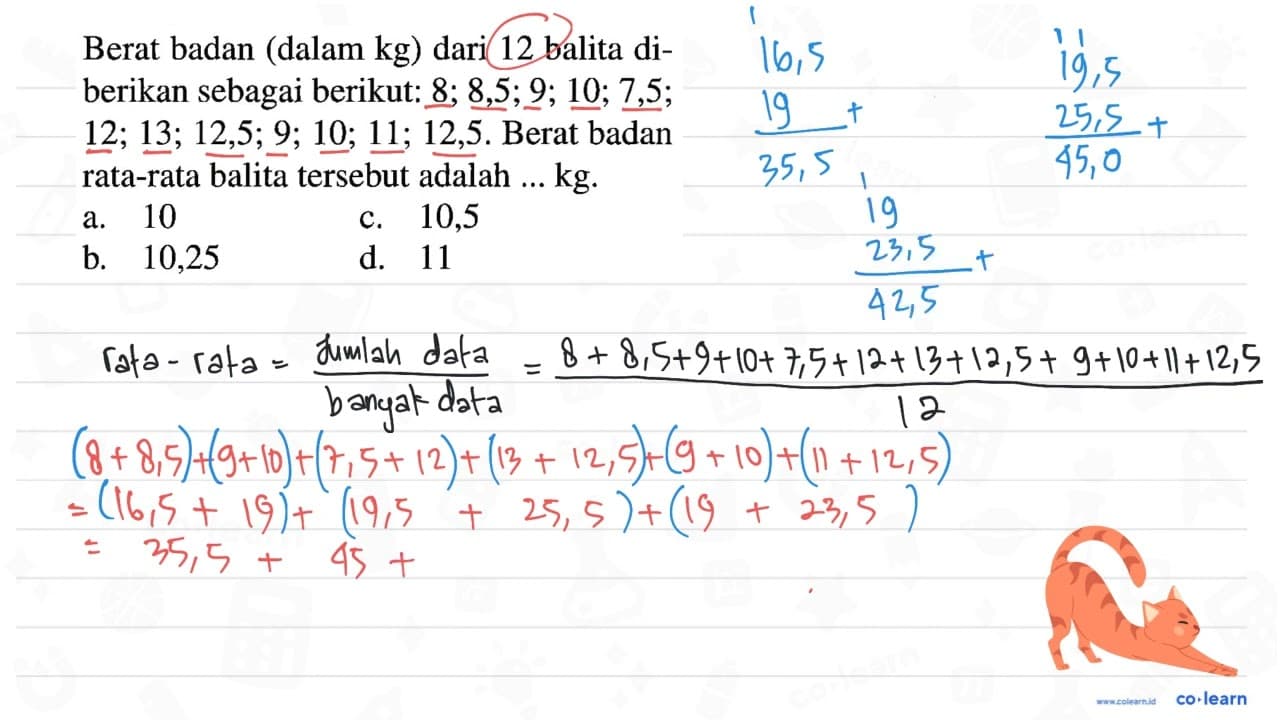 Berat badan (dalam kg) dari 12 balita di-
berikan sebagai berikut: 8; 8,5; 9; 10; 7,5;
12; 13; 12,5; 9; 10; 11; 12,5. Berat badan
rata-rata balita tersebut adalah ... kg.
a. 10 c. 10,5
b. 10,25 d. 11
1
16,5
19 +
35,5
1 1
19,5
25,5 +
45,0
1
19
23,5 +
42,5
rata-rata = Jumlah data / banyak data = 8 + 8,5+9+10+ 7,5+12+13+12,5+ 9+10+11+12,5 / 12
(8+8,5)+(9+10)+(7,5+12)+(13 + 12,5)+(9+10)+(11+12,5)
= (16,5 + 19)+ (19,5 + 25,5)+(19 + 23,5)
= 35,5 + 45 +
www.colearn.id co·learn